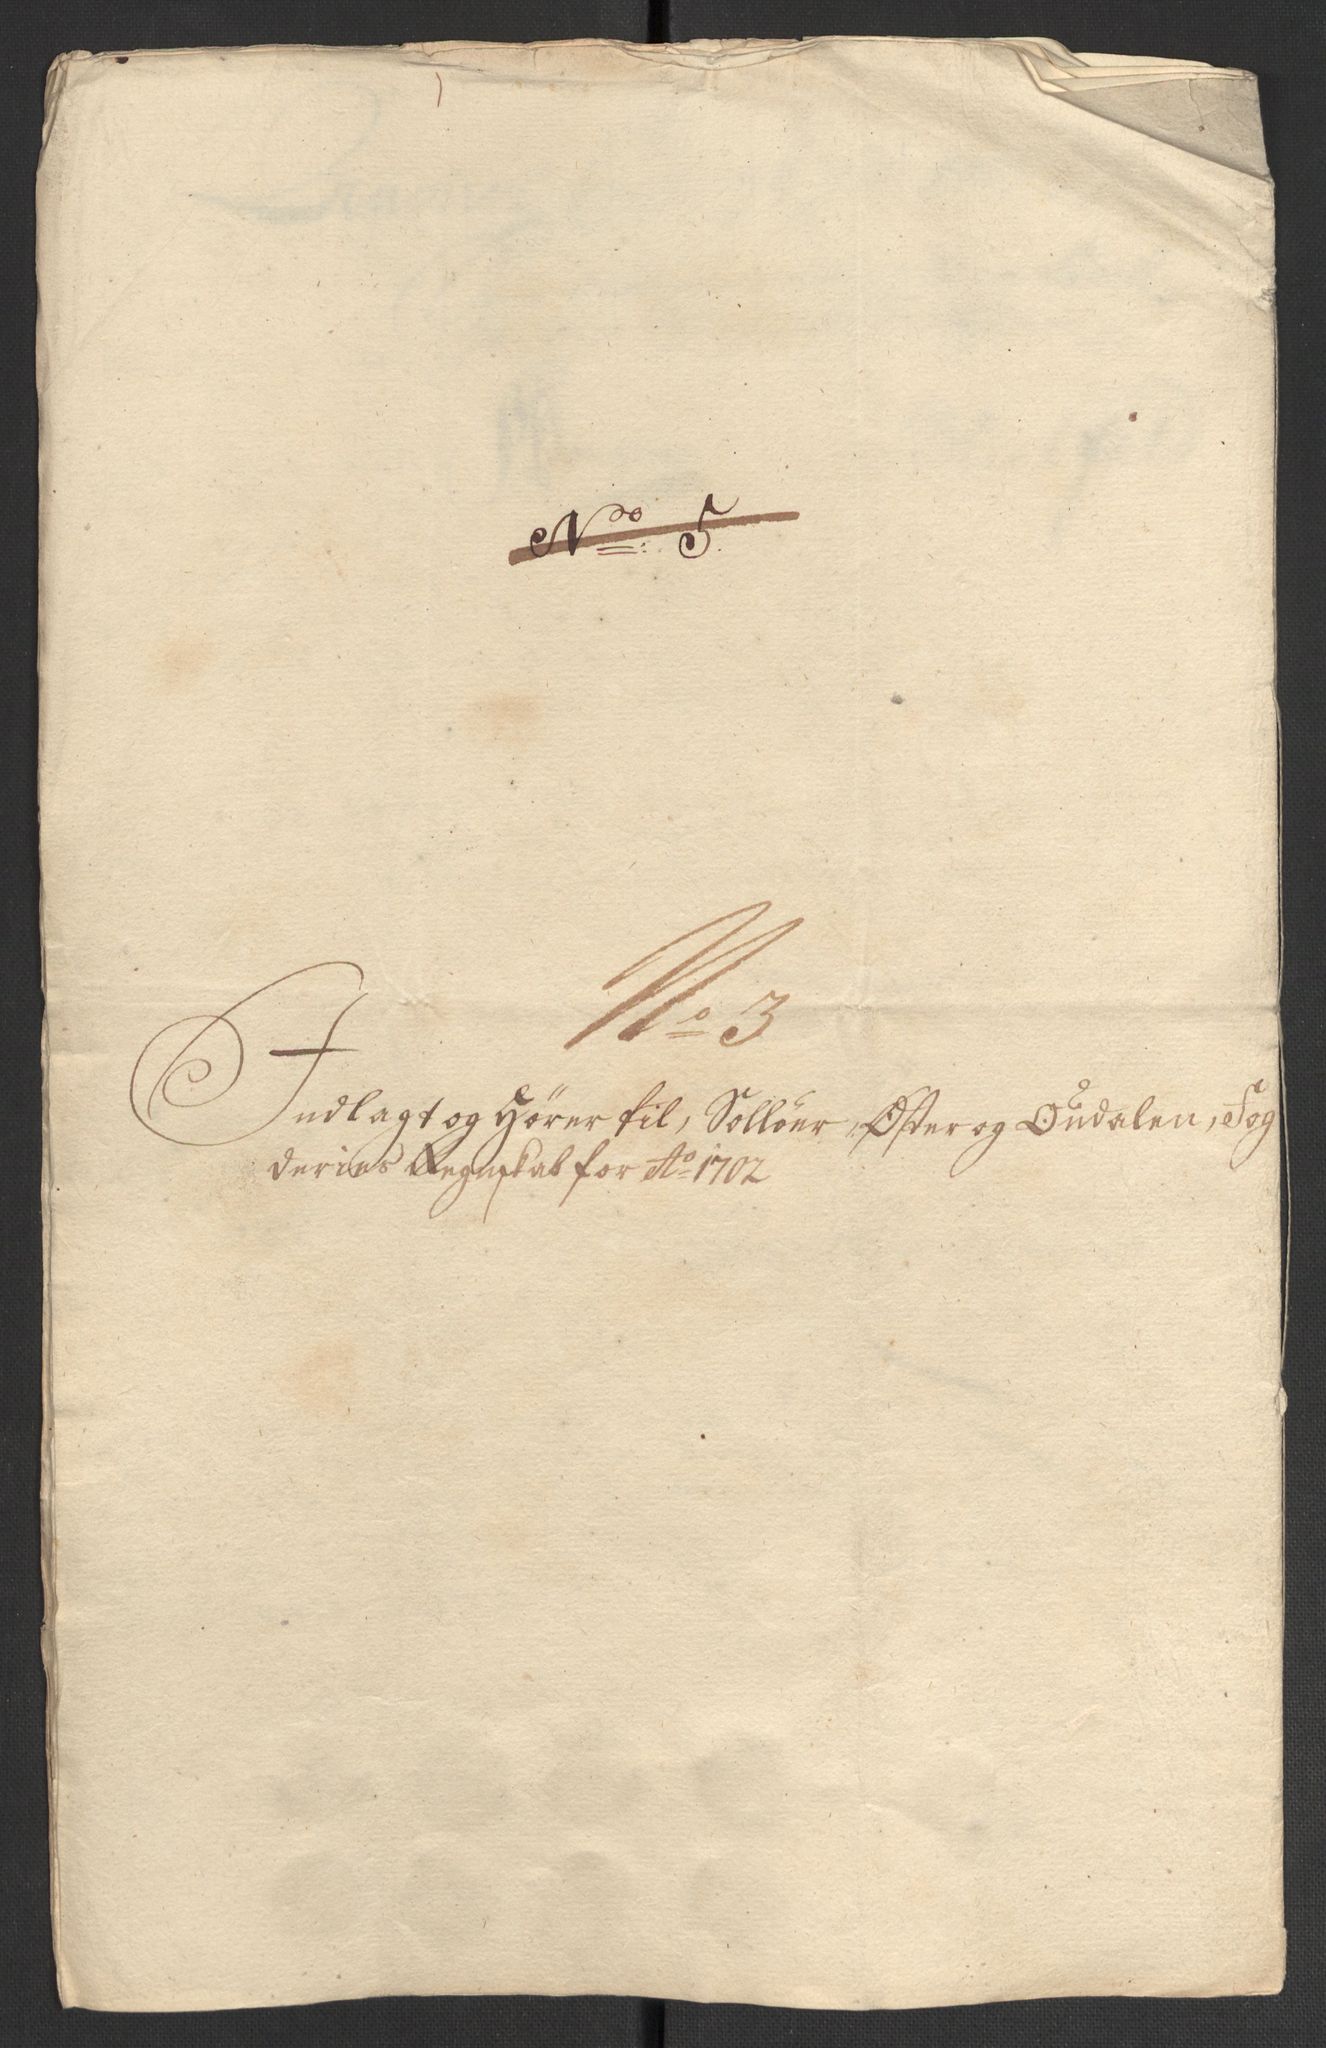 No: 5.
No 3
Indlagt og Hører til, Solløer, Øster og Oudalen, Fog
deries Regnskab for Ao 1702